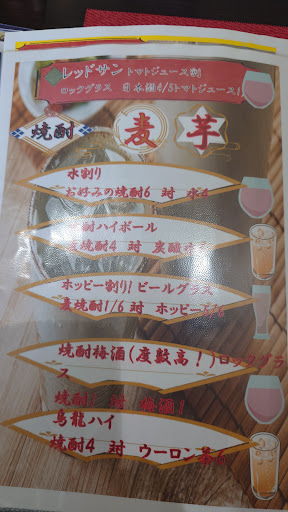 レッドサン トマトジュース割
ロックグラス 日本酒4/5トマトジュース1
焼酎 麦 芋
水割り
お好みの焼酎6 対 水4
酎ハイボール
焼酎4 対 炭酸
ホッピー割り！ビールグラス
麦焼酎1/6 対 ホッピー5/6
焼酎梅酒(度数高！)ロックグラ
ス
焼酎1 対 梅酒1
烏龍ハイ
焼酎4 対 ウーロン茶6